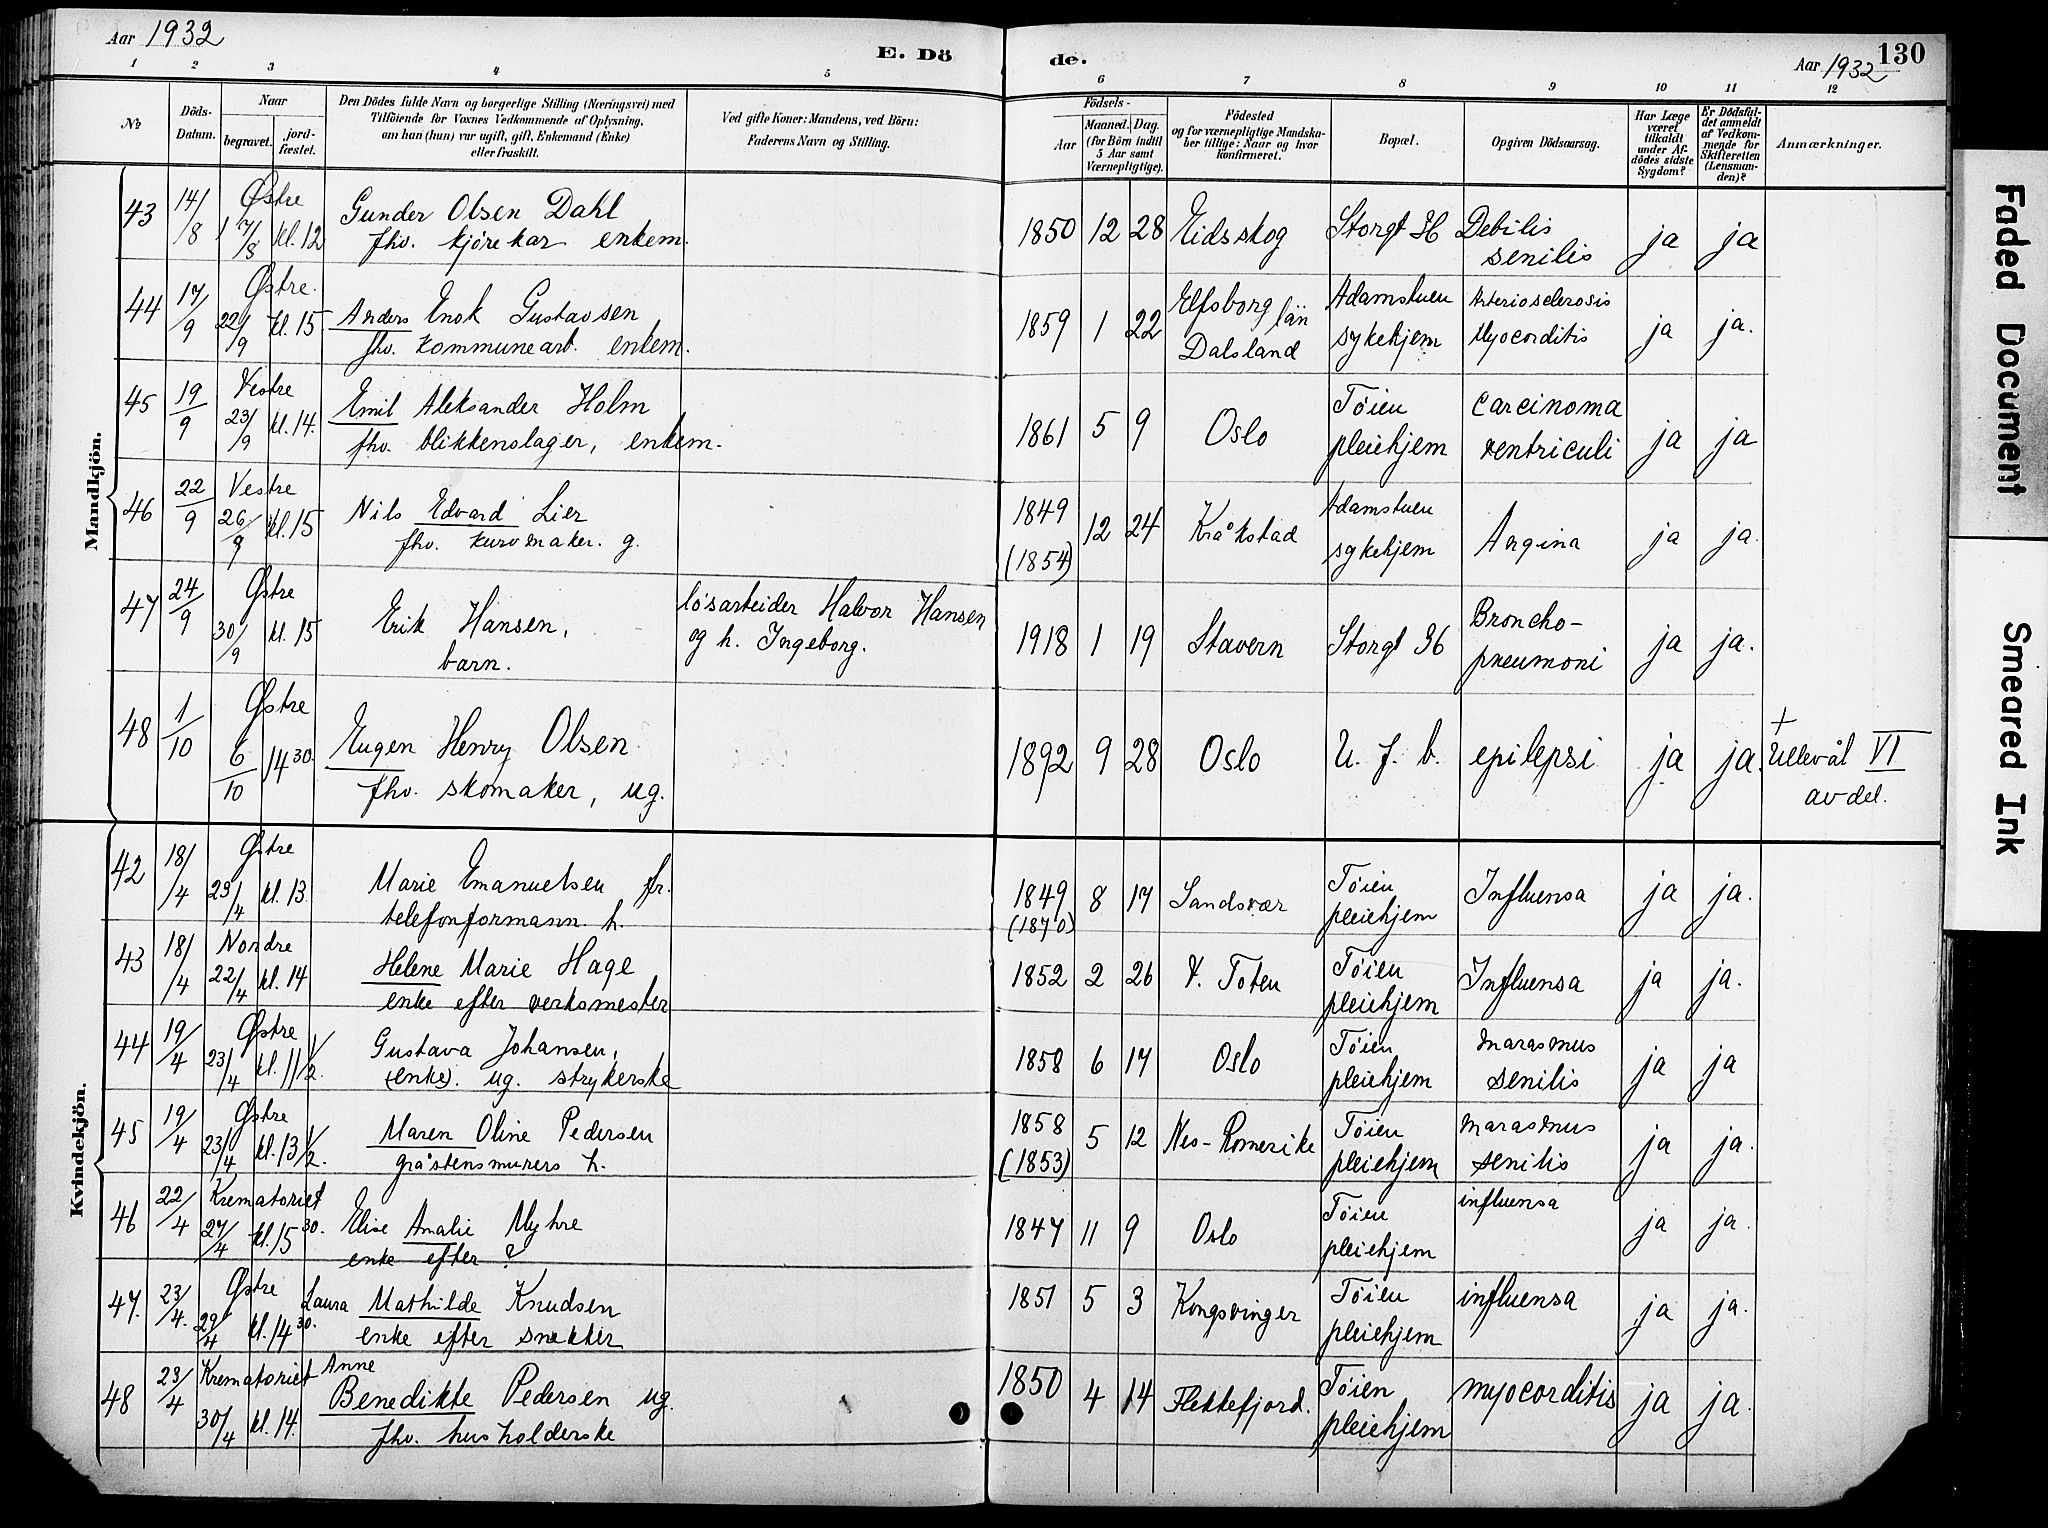 Aar 1932
E. Dö
de.
Aar 1932
130
1 2 3 4 5 6 7 8 9 10 11 12
№
Döds-Datum.
Naar
begravet.
jord-fæstet.
Den Dödes fulde Navn og borgerlige Stilling (Næringsvei) med
Tilföiende for Voxnes Vedkommende af Oplysning,
om han (hun) var ugift, gift, Enkemand (Enke)
eller fraskilt.
Ved gifte Koner: Mandens, ved Börn:
Faderens Navn og Stilling.
Födsels-
Aar
Maaned. Dag.
(for Börn indtil
5 Aar samt
Værnepligtige).
Födested
og for værnepligtige Mandska-
ber tillige: Naar og hvor
konfirmeret.
Bopæl.
Opgiven Dödsaarsag.
Har Læge
været
tilkaldt
under Af-
dödes sidste
Sygdom?
Er Dödsfal-
det anmeldt
af Vedkom-
mende for
Skifteretten
(Lensman-
den)?
Anmærkninger.
Mandkjön.
43 14/8 Østre 17/8 kl. 12 Gunder Olsen Dahl
fhv. kjørekar enkem.
1850 12 28 Eidsskog Storgt 36 Debilis
senilis ja ja
44 17/9 Østre. 22/9 kl. 15 Anders Enok Gustavsen
fhv. kommunearb. enkem.
1859 1 22 Elfsborg län
Dalsland Adamstuen
sykehjem Arteriosclerosis
Myocorditis ja ja.
45 19/9 Vestre 23/9 kl. 14. Emil Aleksander Holm
fhv. blikkenslager, enkem.
1861 5 9 Oslo Tøien
pleiehjem Carcinoma
ventriculi ja ja
46 22/9 Vestre 26/9 kl. 15 Nils Edvard Lier
fhv. kurvmaker. g.
1849
(1854) 12 24 Kråkstad Adamstuen
sykehjem Angina ja ja.
47 24/9 Østre 30/9 kl. 15 Erik Hansen,
barn.
løsarbeider Halvor Hansen
og h. Ingeborg.
1918 1 19 Stavern Storgt 36 Broncho-
pneumoni ja ja.
48 1/10 Østre 6/10 14 30. Eugen Henry Olsen
fhv. skomaker, ug.
1892 9 28 Oslo U. f. b. epilepsi ja ja.
+
Ullevål VI
avdel.
Kvindekjön.
42 18/4 Østre 23/4 kl. 13. Marie Emanuelsen fr.
telefonformann. h.
1849
(1870) 8 17 Sandsvær Tøien
pleiehjem Influensa ja ja.
43 18/4 Nordre 22/4 kl. 14 Helene Marie Hage
enke efter verksmester
1852 2 26 V. Toten Tøien
pleiehjem Influensa ja ja.
44 19/4 Østre 23/4 kl. 11 1/2. Gustava Johansen,
(enke). ug. strykerske
1858 6 17 Oslo Tøien
pleiehjem Marasmus
senilis ja ja
45 19/4 Østre 23/4 kl. 13 1/2. Maren Oline Pedersen
gråstensmurers h.
1858
(1853) 5 12 Nes-Romerike Tøien
pleiehjem Marasmus
senilis ja ja.
46 22/4 Krematoriet 27/4 kl. 15 30. Elise Amalie Myhre
enke efter ?
1847 11 9 Oslo Tøien
pleiehjem influensa ja ja.
47. 23/4. Østre 29/4 kl. 14 30. Laura Mathilde Knudsen
enke efter snekker
1851 5 3 Kongsvinger Tøien
pleiehjem influensa ja ja.
48 23/4 Krematoriet 30/4 kl. 14. Anne
Benedikte Pedersen ug.
fhv. husholderske
1850 4 14 Flekkefjord. Tøien
pleiehjem myocorditis ja ja.
Faded Document
Smeared Ink